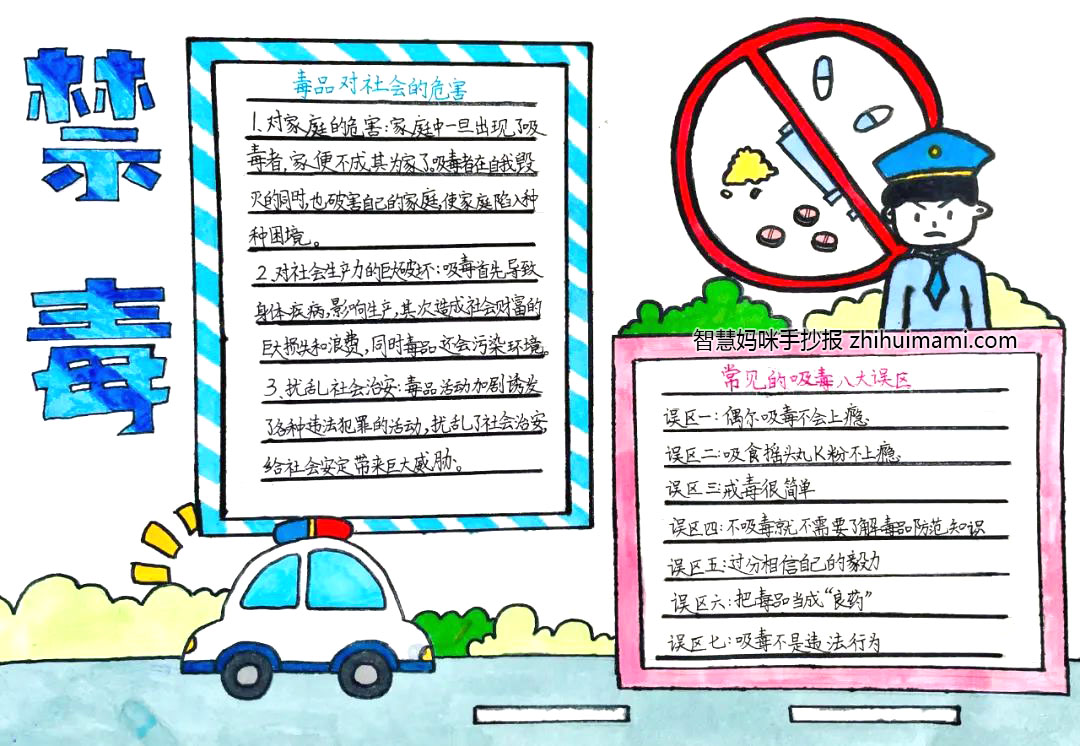 禁毒
毒品对社会的危害
1、对家庭的危害:家庭中一旦出现了吸
毒者,家便不成其为家了。吸毒者在自我毁
灭的同时,也破害自己的家庭,使家庭陷入种
种困境。
2、对社会生产力的巨大破坏:吸毒首先导致
身体疾病,影响生产,其次造成社会财富的
巨大损失和浪费,同时毒品还会污染环境。
3、扰乱社会治安:毒品活动加剧诱发
了各种违法犯罪的活动,扰乱了社会治安,
给社会安定带来巨大威胁。
智慧妈咪手抄报 zhihuimami.com
常见的吸毒八大误区
误区一:偶尔吸毒不会上瘾
误区二:吸食摇头丸K粉不上瘾
误区三:戒毒很简单
误区四:不吸毒就不需要了解毒品防范知识
误区五:过分相信自己的毅力
误区六:把毒品当成“良药”
误区七:吸毒不是违法行为